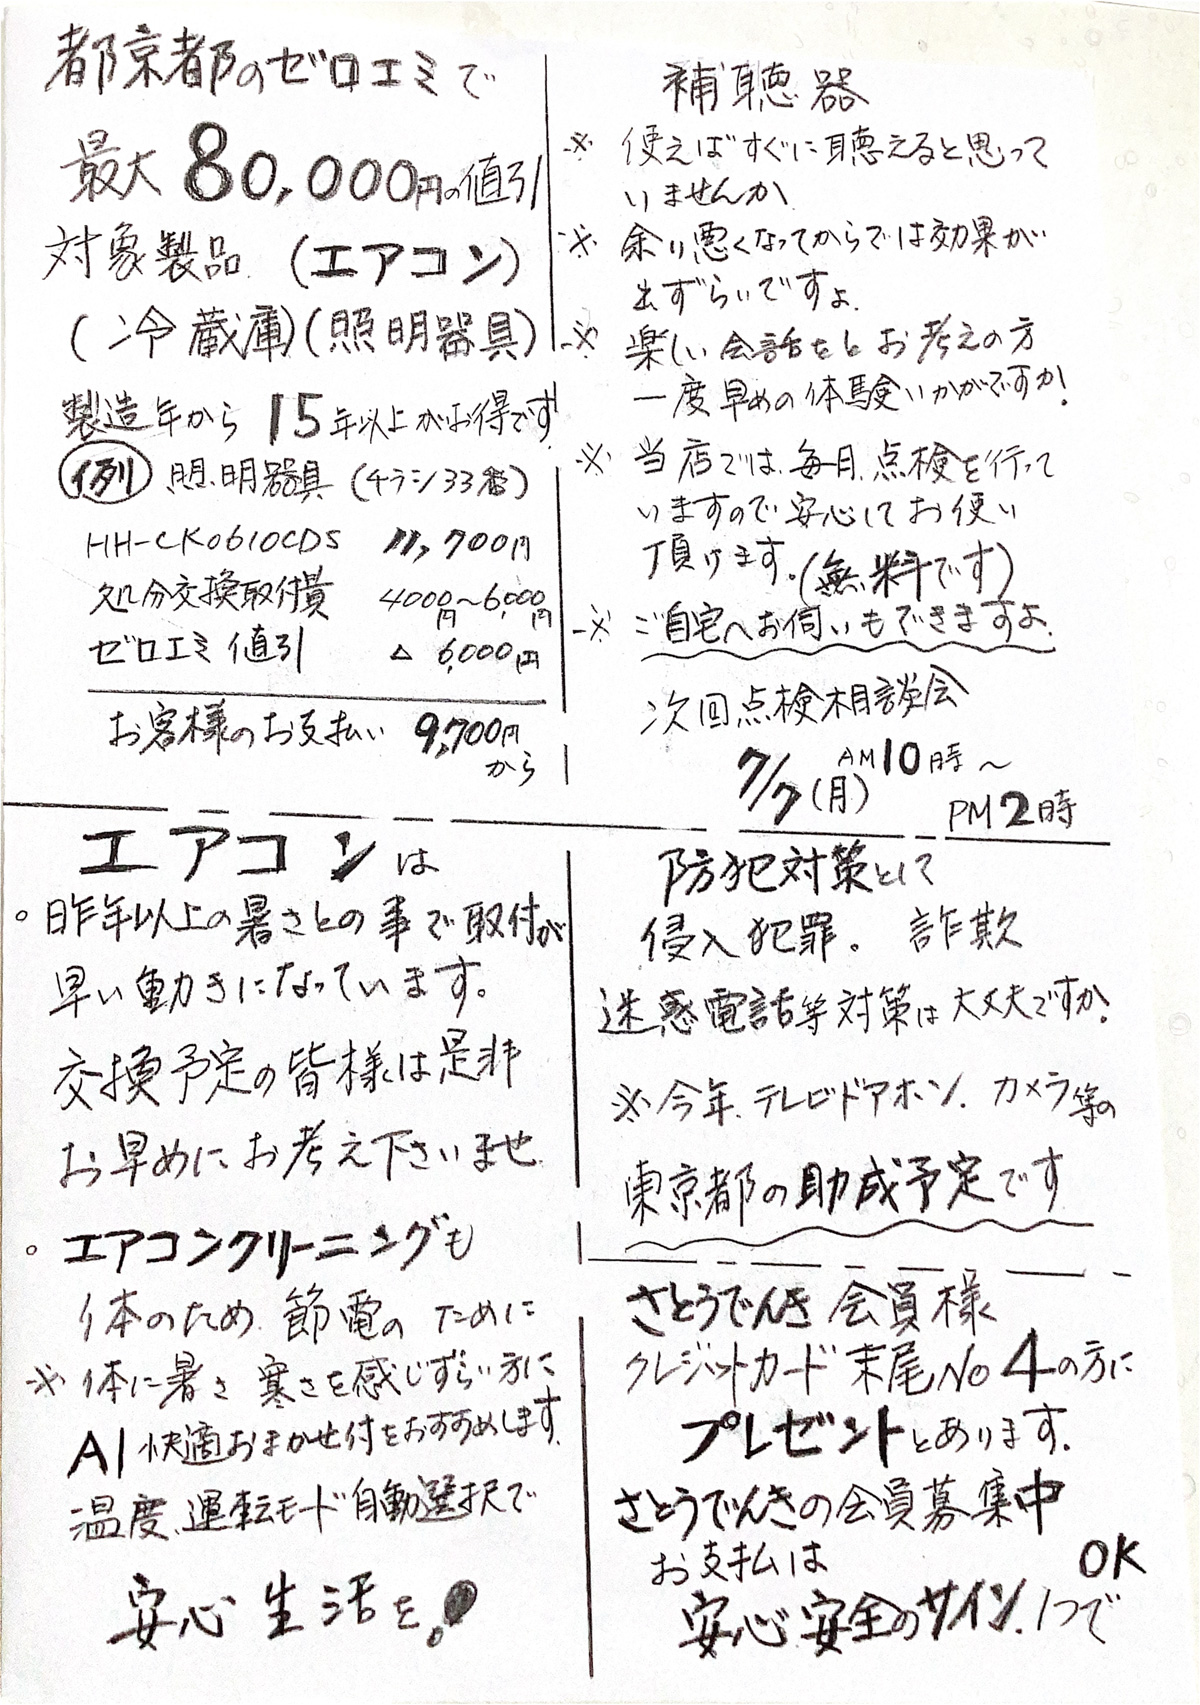 都京都のゼロエミで
最大80,000円の値引
対象製品 (エアコン)
(冷蔵庫)(照明器具)
製造年から15年以上がお得です
例 照明器具 (チラシ33番)
HH-CK0610CDS 11,700円
処分交換取付費 4000円~6,000円
ゼロエミ値引 △ 6,000円
お客様のお支払い 9,700円
から
補聴器
※ 使えばすぐに聴えると思って
いませんか
※ 余り悪くなってからでは効果が
出ずらいですよ.
※ 楽しい会話をとお考えの方
一度早めの体験いかがですか!
※ 当店では、毎月、点検を行って
いますので安心してお使い
頂けます。(無料です)
※ ご自宅へお伺いもできますよ.
次回点検相談会
7/7(月) AM10時~
PM2時
エアコンは
○ 昨年以上の暑さとの事で取付が
早い動きになっています。
交換予定の皆様は是非
お早めにお考え下さいませ
○ エアコンクリーニングも
体のため 節電の ために
※ 体に暑さ 寒さを感じずらい方に
AI快適おまかせ付をおすすめします.
温度、運転モード自動選択で
安心生活を!
防犯対策として
侵入犯罪。 詐欺
迷惑電話等対策は大丈夫ですか?
※今年、テレビドアホン、カメラ等の
東京都の助成予定です
さとうでんき会員様
クレジットカード末尾No4の方に
プレゼントとあります.
さとうでんきの会員募集中
お支払は OK
安心安全のサイン、1つで